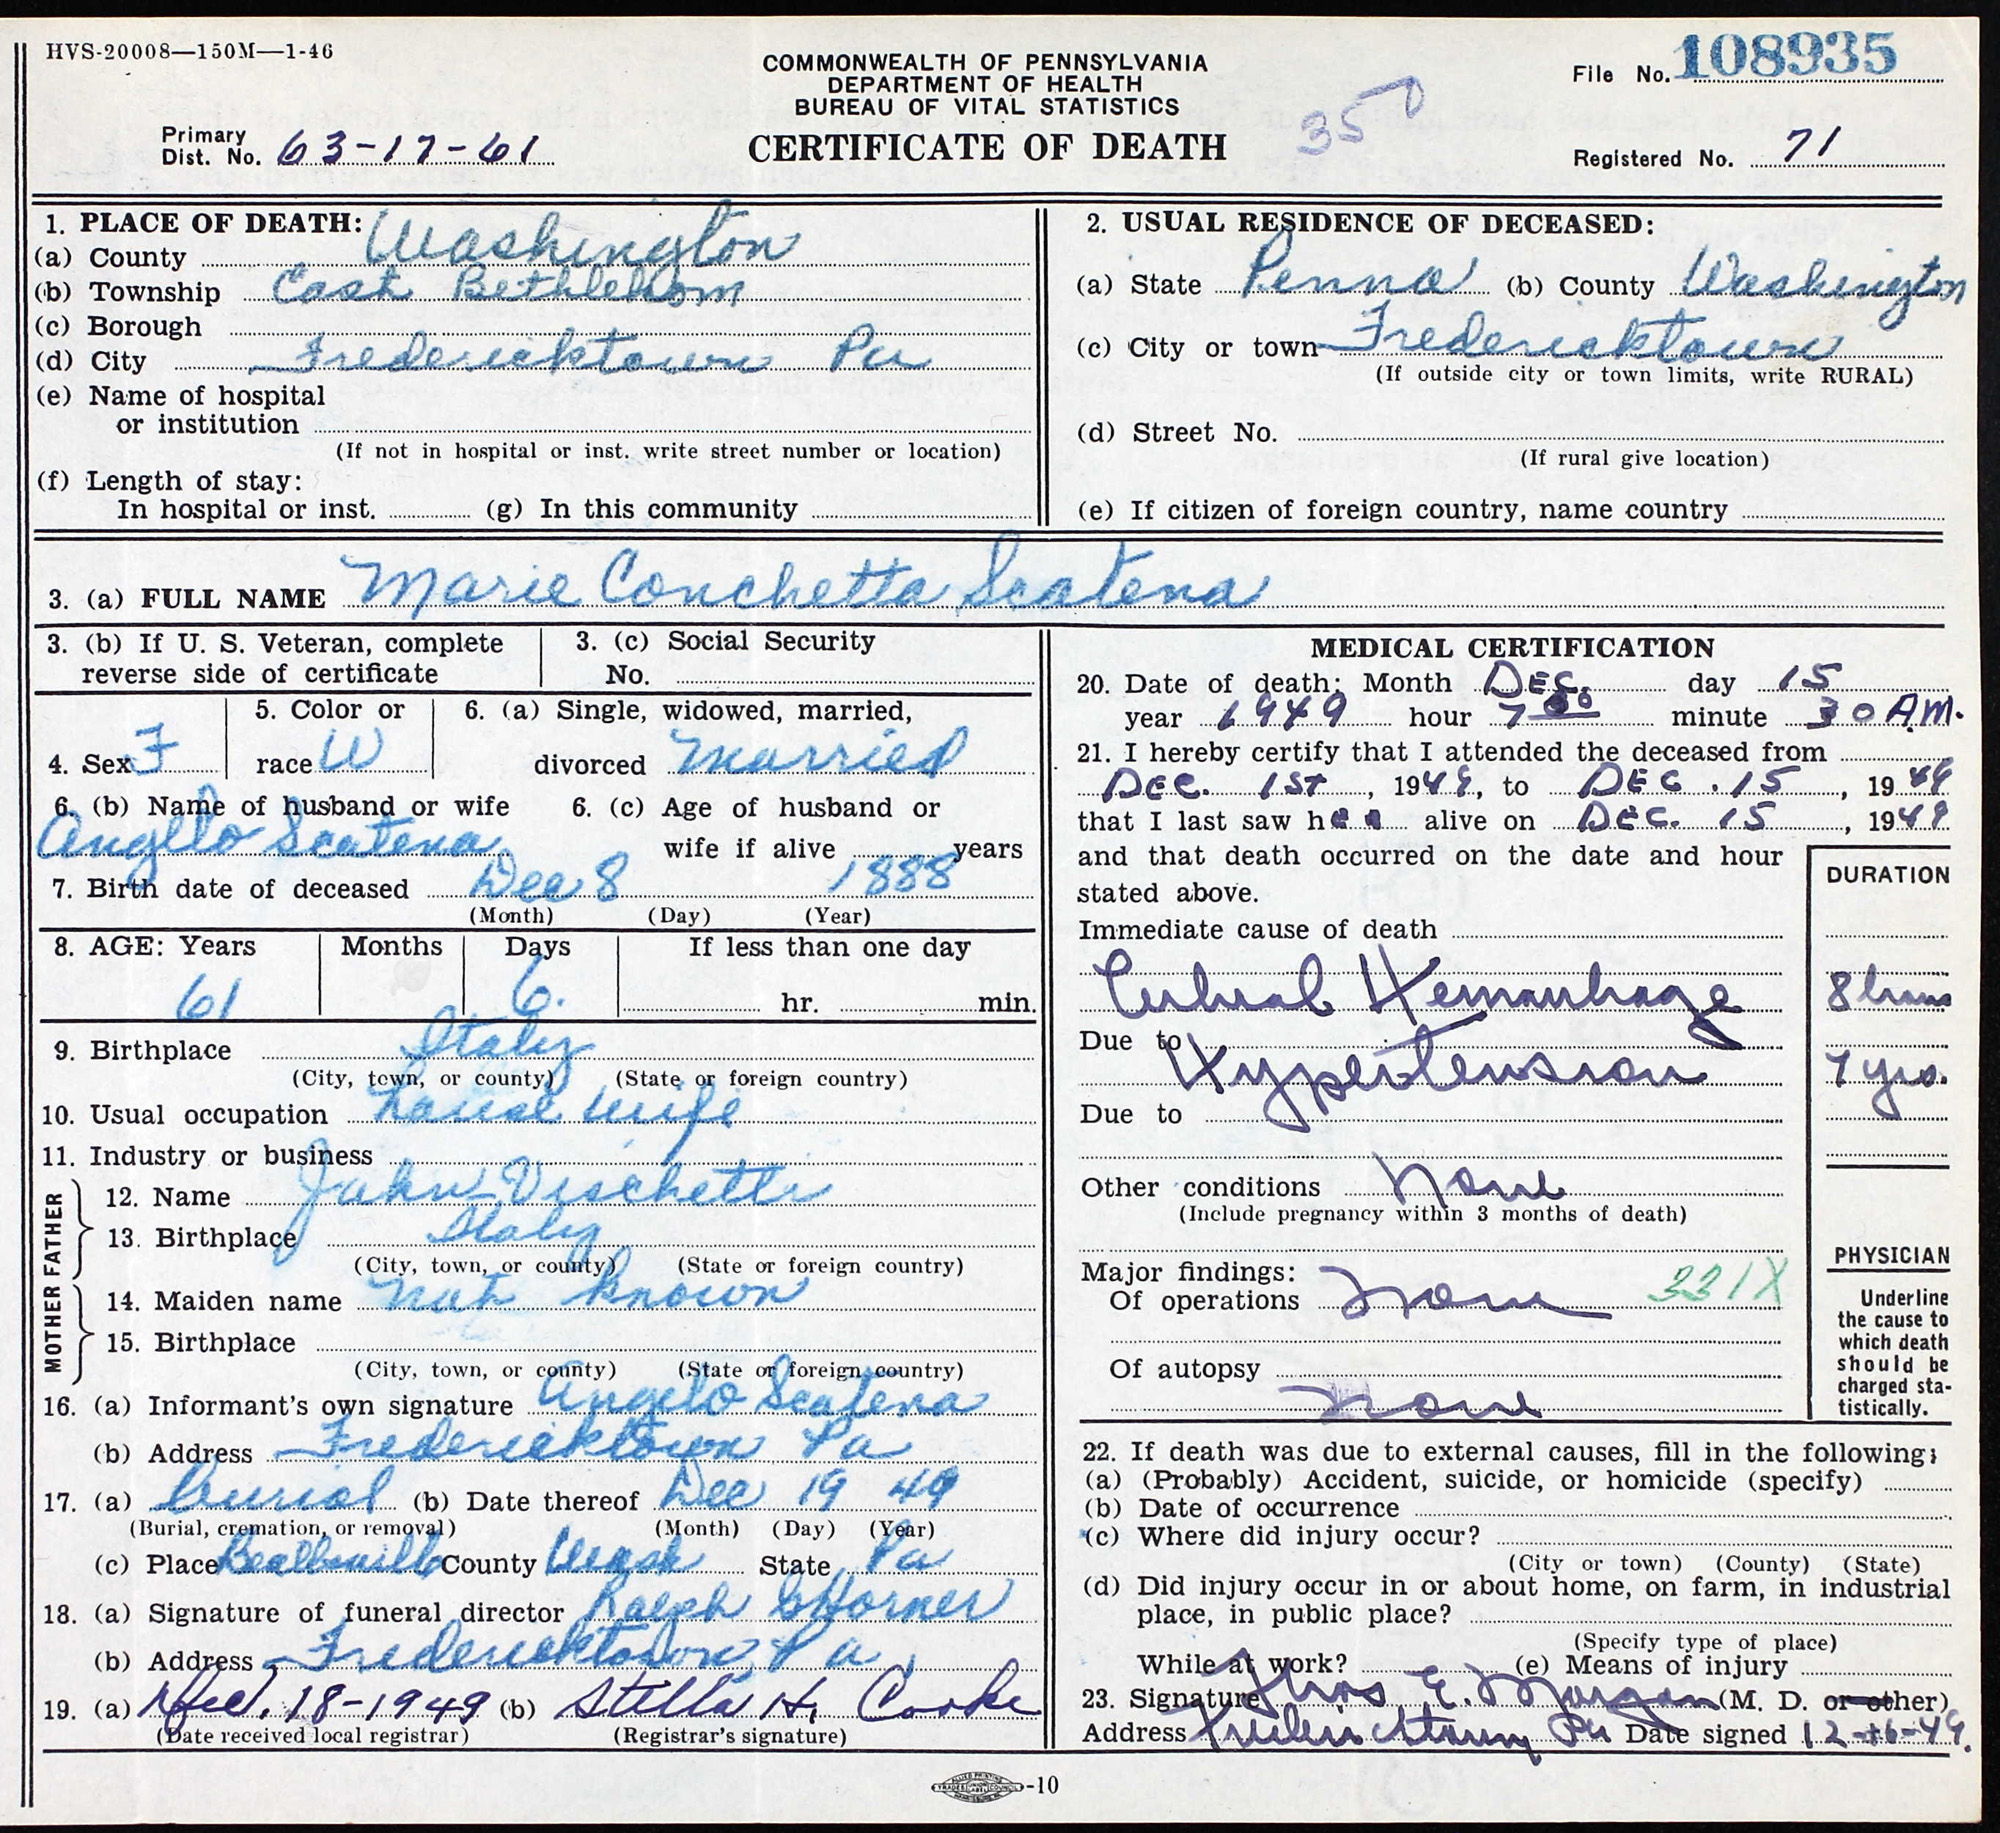 HVS-20008—150M—1-46
COMMONWEALTH OF PENNSYLVANIA
DEPARTMENT OF HEALTH
BUREAU OF VITAL STATISTICS
CERTIFICATE OF DEATH
350
File No. 108935
Primary
Dist. No. 63-17-61
Registered No. 71
1. PLACE OF DEATH:
(a) County Washington
(b) Township East Bethlehem
(c) Borough
(d) City Fredericktown Pa
(e) Name of hospital
or institution
(If not in hospital or inst. write street number or location)
(f) Length of stay:
In hospital or inst. (g) In this community
2. USUAL RESIDENCE OF DECEASED:
(a) State Penna (b) County Washington
(c) City or town Fredericktown
(If outside city or town limits, write RURAL)
(d) Street No.
(If rural give location)
(e) If citizen of foreign country, name country
3. (a) FULL NAME Marie Conchetta Scatena
3. (b) If U. S. Veteran, complete
reverse side of certificate
3. (c) Social Security
No.
4. Sex F
5. Color or
race W
6. (a) Single, widowed, married,
divorced Married
6. (b) Name of husband or wife
Angelo Scatena
6. (c) Age of husband or
wife if alive years
7. Birth date of deceased Dec 8 1888
(Month) (Day) (Year)
8. AGE: Years Months Days If less than one day
61 6. hr. min.
9. Birthplace Italy
(City, town, or county) (State or foreign country)
10. Usual occupation house wife
11. Industry or business
FATHER
12. Name John Vischetti
13. Birthplace Italy
(City, town, or county) (State or foreign country)
MOTHER
14. Maiden name not known
15. Birthplace
(City, town, or county) (State or foreign country)
16. (a) Informant's own signature Angelo Scatena
(b) Address Fredericktown Pa
17. (a) Burial (b) Date thereof Dec 19 49
(Burial, cremation, or removal) (Month) (Day) (Year)
(c) Place Beallsville County Wash State Pa
18. (a) Signature of funeral director Ralph Horner
(b) Address Fredericktown, Pa.
19. (a) Dec. 18-1949 (b) Stella H. Cooke
(Date received local registrar) (Registrar's signature)
MEDICAL CERTIFICATION
20. Date of death: Month DEC. day 15
year 1949 hour 7 minute 30 A.M.
21. I hereby certify that I attended the deceased from
DEC. 1ST, 1949, to DEC. 15, 1949
that I last saw her alive on DEC. 15, 1949
and that death occurred on the date and hour
stated above.
DURATION
Immediate cause of death
Cerebral Hemorrhage 8 hours
Due to
Hypertension 7 yrs.
Due to
Other conditions None
(Include pregnancy within 3 months of death)
Major findings:
Of operations None 331X
Of autopsy
None
PHYSICIAN
Underline
the cause to
which death
should be
charged sta-
tistically.
22. If death was due to external causes, fill in the following;
(a) (Probably) Accident, suicide, or homicide (specify)
(b) Date of occurrence
(c) Where did injury occur?
(City or town) (County) (State)
(d) Did injury occur in or about home, on farm, in industrial
place, in public place?
(Specify type of place)
While at work? (e) Means of injury
23. Signature Thos E. Morgan (M. D. or other)
Address Fredericktown Pa Date signed 12-16-49.
-10